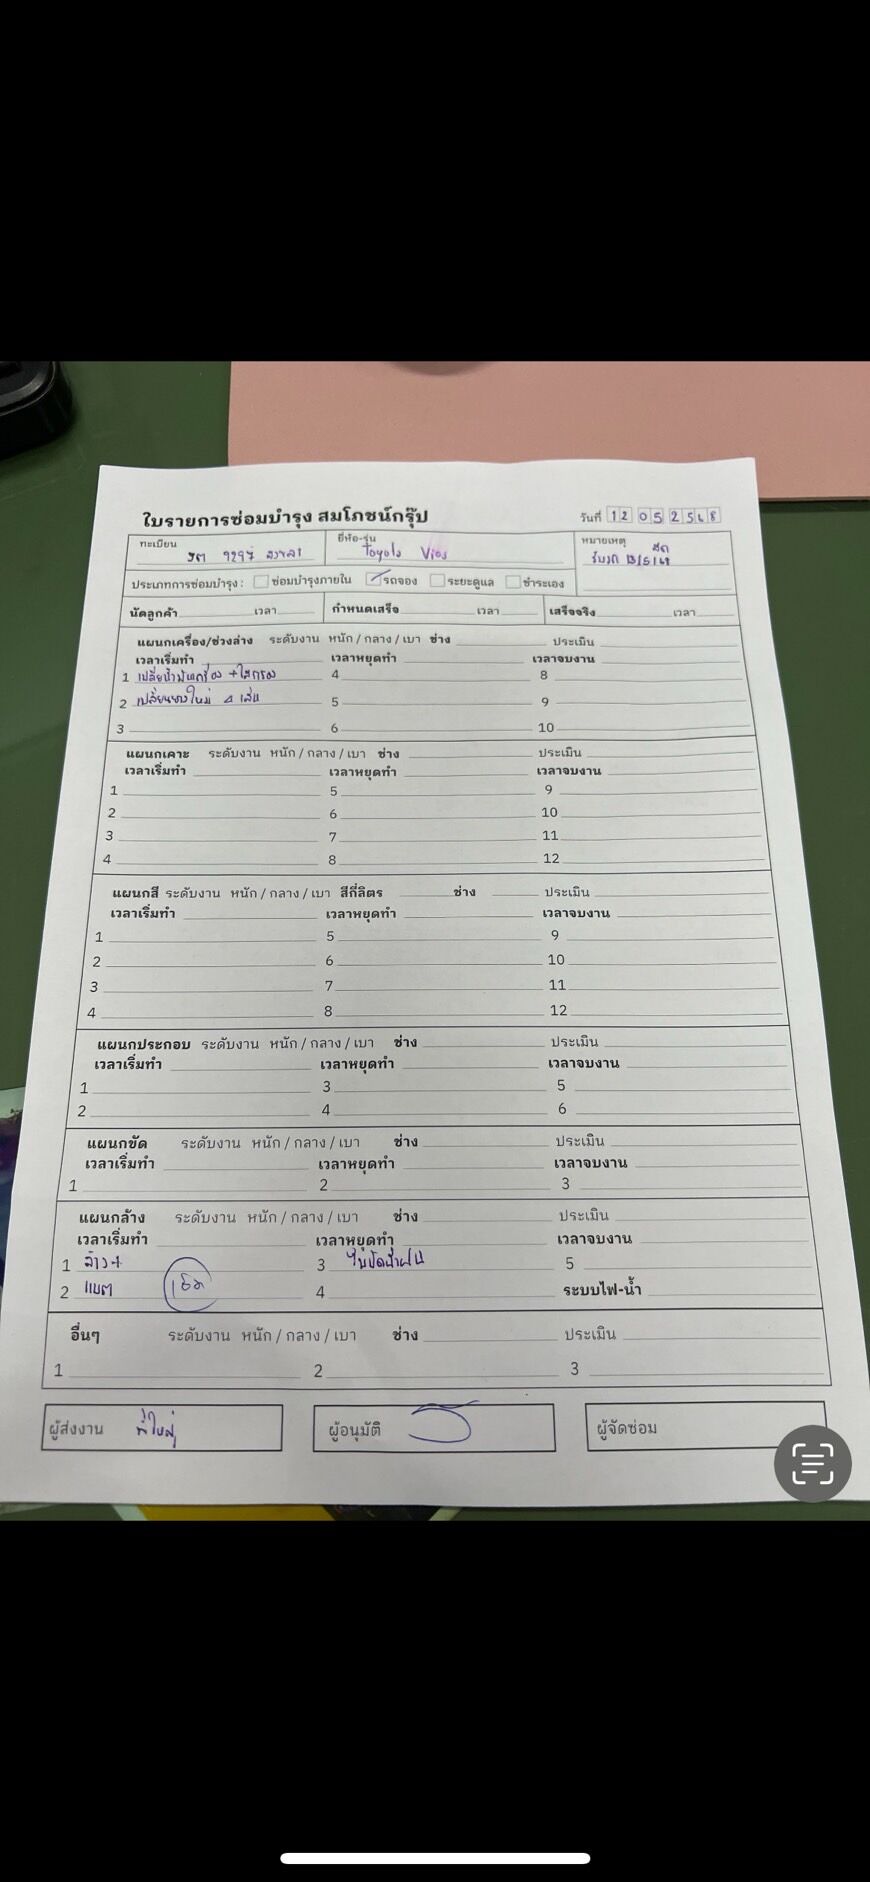 ใบรายการซ่อมบำรุง สมโภชน์กรุ๊ป วันที่ 12 05 2568
ทะเบียน ยี่ห้อ-รุ่น Toyota Vios หมายเหตุ สด
สงขลา รับรถ 13/5/68
ประเภทการซ่อมบำรุง : ซ่อมบำรุงภายใน รถจอง ระยะดูแล ชำระเอง
นัดลูกค้า เวลา กำหนดเสร็จ เวลา เสร็จจริง เวลา
แผนกเครื่อง/ช่วงล่าง ระดับงาน หนัก / กลาง / เบา ช่าง ประเมิน
เวลาเริ่มทำ เวลาหยุดทำ เวลาจบงาน
1 เปลี่ยนน้ำมันเครื่อง + ไส้กรอง 4 8
2 เปลี่ยนยางใหม่ 4 เส้น 5 9
3 6 10
แผนกเคาะ ระดับงาน หนัก / กลาง / เบา ช่าง ประเมิน
เวลาเริ่มทำ เวลาหยุดทำ เวลาจบงาน
1 5 9
2 6 10
3 7 11
4 8 12
แผนกสี ระดับงาน หนัก / กลาง / เบา สีกี่ลิตร ช่าง ประเมิน
เวลาเริ่มทำ เวลาหยุดทำ เวลาจบงาน
1 5 9
2 6 10
3 7 11
4 8 12
แผนกประกอบ ระดับงาน หนัก / กลาง / เบา ช่าง ประเมิน
เวลาเริ่มทำ เวลาหยุดทำ เวลาจบงาน
1 3 5
2 4 6
แผนกขัด ระดับงาน หนัก / กลาง / เบา ช่าง ประเมิน
เวลาเริ่มทำ เวลาหยุดทำ เวลาจบงาน
1 2 3
แผนกล้าง ระดับงาน หนัก / กลาง / เบา ช่าง ประเมิน
เวลาเริ่มทำ เวลาหยุดทำ เวลาจบงาน
1 ล้าง + 3 ใบปัดน้ำฝน 5
2 แบต เช็ค 4 ระบบไฟ-น้ำ
อื่นๆ ระดับงาน หนัก / กลาง / เบา ช่าง ประเมิน
1 2 3
ผู้ส่งงาน พี่ใหญ่ ผู้อนุมัติ ผู้จัดซ่อม